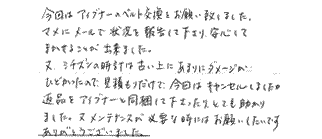 今回はアイグナーのベルト交換をお願い致しました。
マメにメールで状況を報告して下さり、安心して
まかせることが出来ました。
又、シチズンの時計は古い上にあまりにダメージが
ひどかったので、見積もりだけで、今回はキャンセルしましたが
返品をアイグナーと同梱して下さったり、とても助かり
ました。又メンテナンスが必要な時にはお願いしたいです
ありがとうございました。